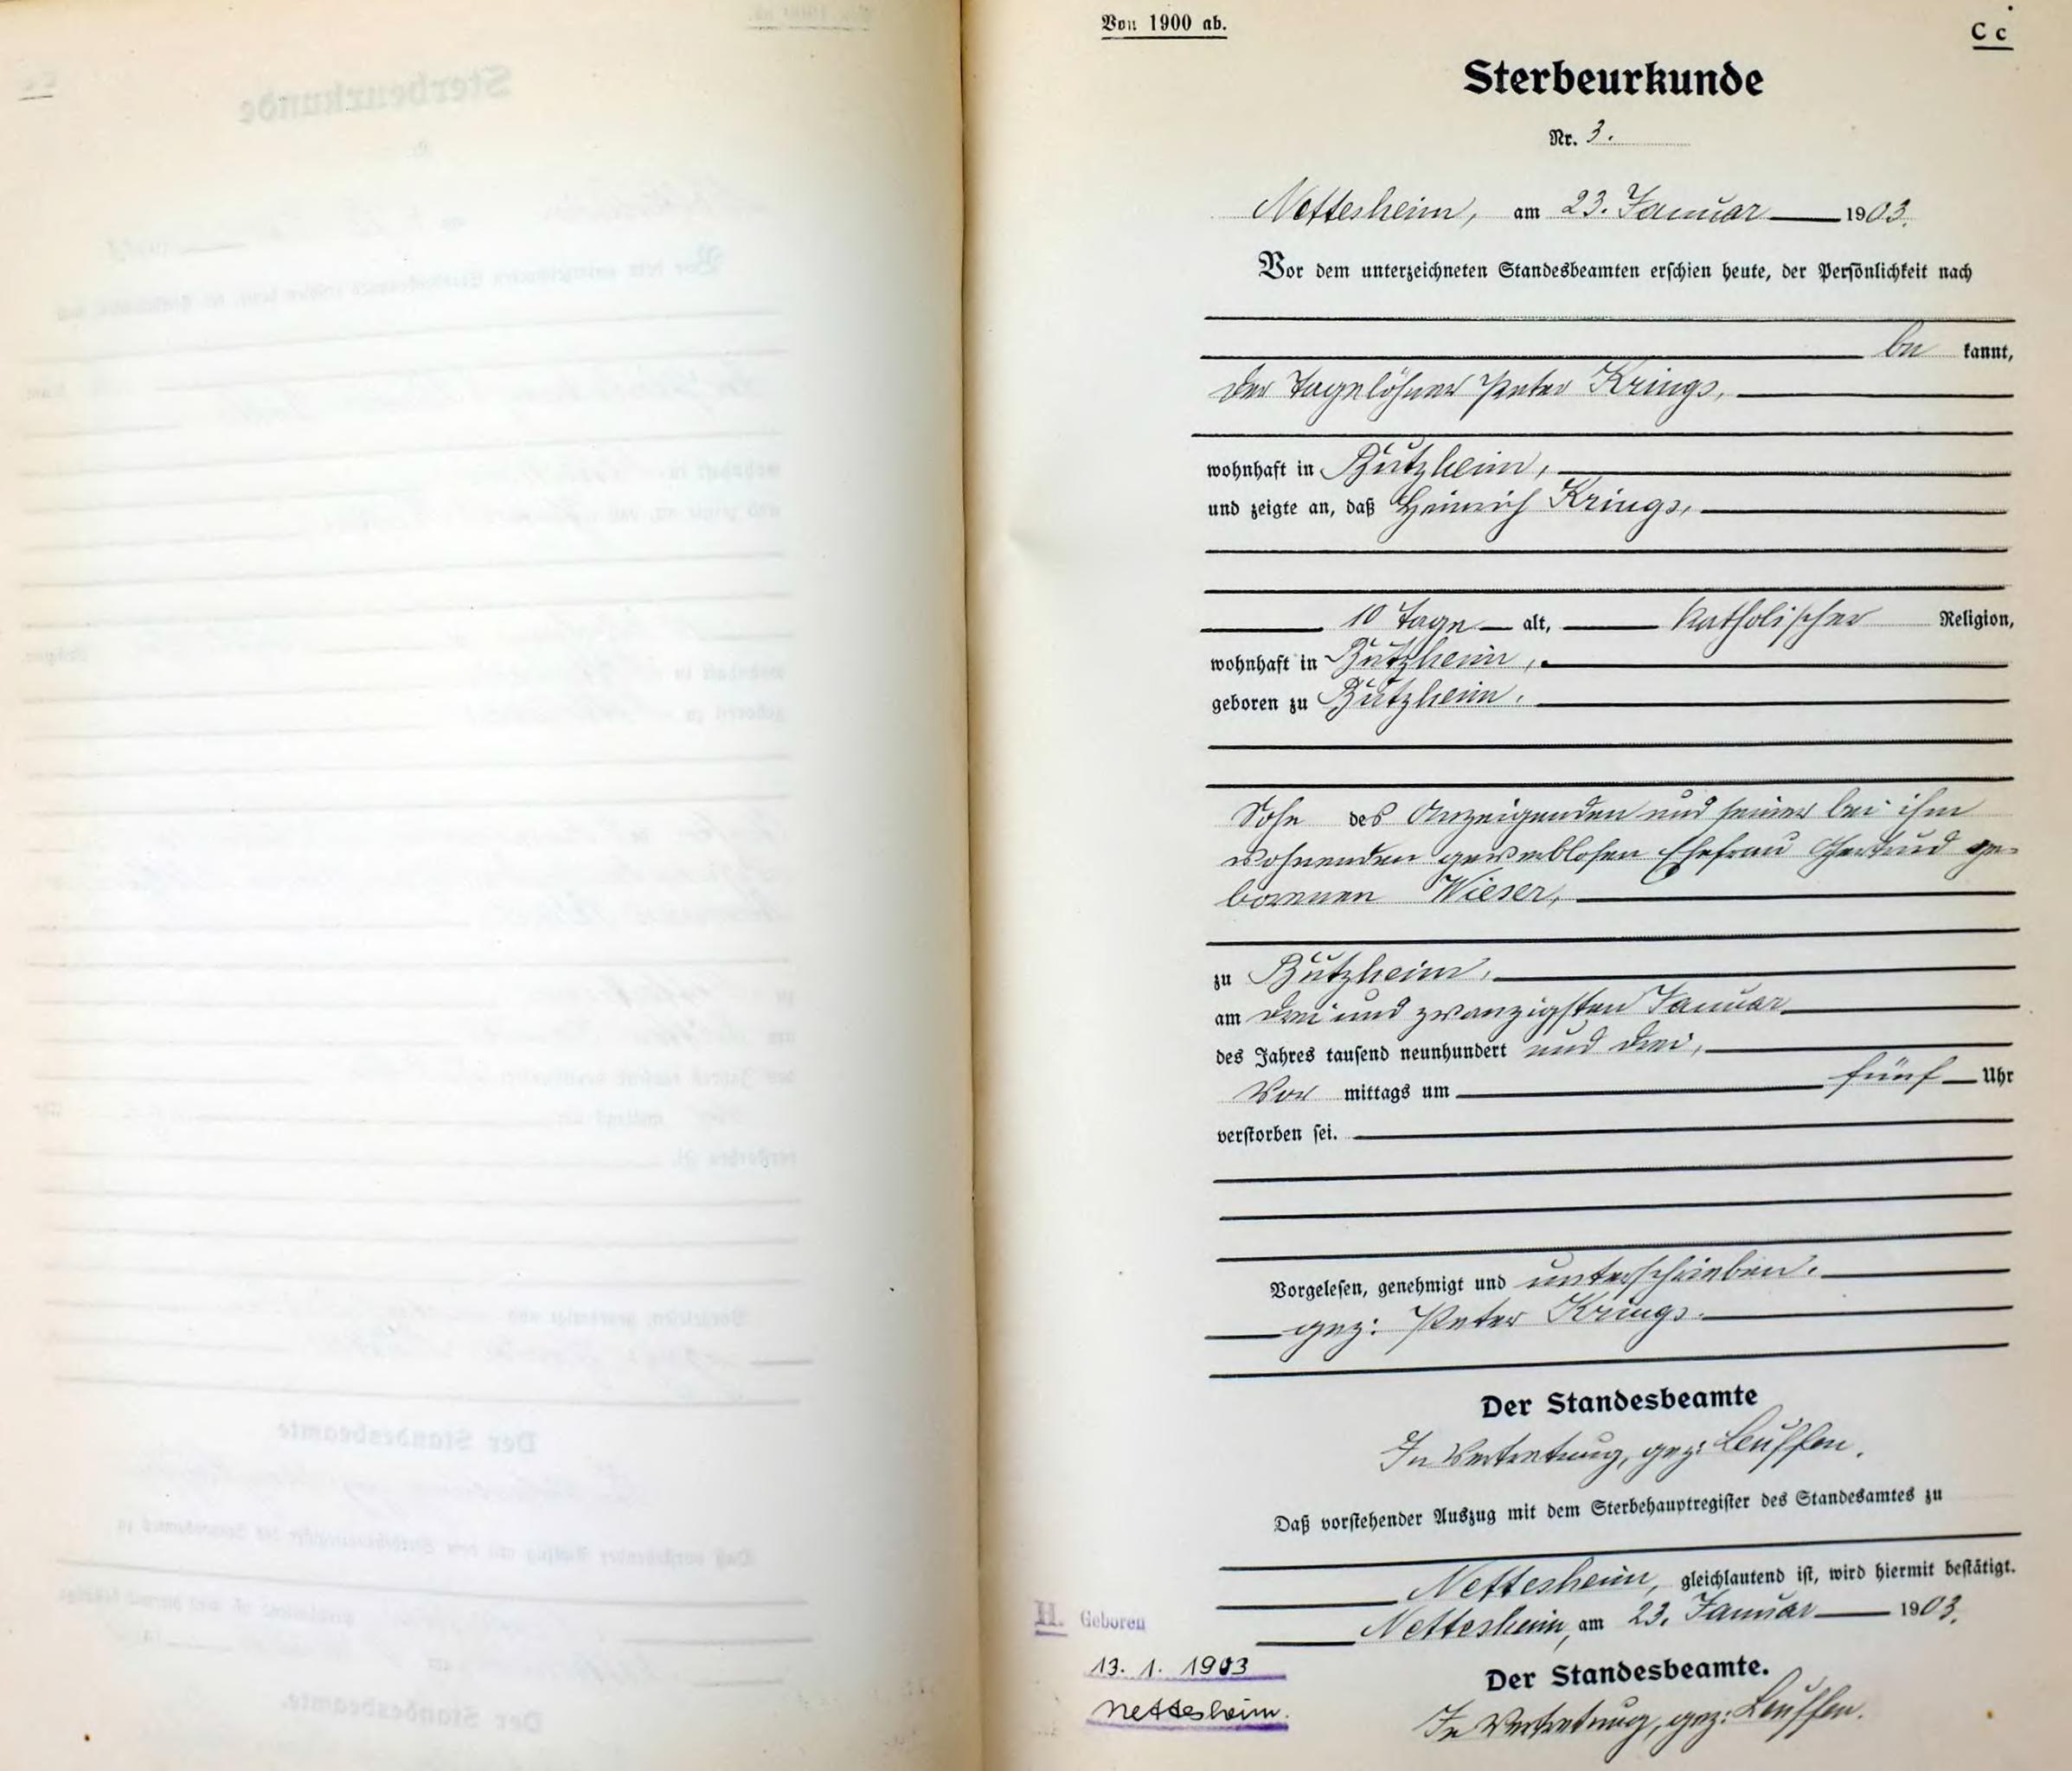 Von 1900 ab.
C c
Sterbeurkunde
Nr. 3.
Nettesheim, am 23. Januar 1903.
Vor dem unterzeichneten Standesbeamten erschien heute, der Persönlichkeit nach
be kannt,
der Tagelöhner Peter Krings,
wohnhaft in Bützheim,
und zeigte an, daß Heinrich Krings,
10 Tage alt, katholischer Religion,
wohnhaft in Bützheim,
geboren zu Bützheim,
Sohn des Anzeigenden und seiner bei ihm
wohnenden gewerblosen Ehefrau Gertrud ge-
borenen Wieser,
zu Bützheim,
am drei und zwanzigsten Januar
des Jahres tausend neunhundert und drei,
Vor mittags um fünf Uhr
verstorben sei.
Vorgelesen, genehmigt und unterschrieben.
gez: Peter Krings.
Der Standesbeamte
In Vertretung, gez: Leuffen.
Daß vorstehender Auszug mit dem Sterbehauptregister des Standesamtes zu
Nettesheim, gleichlautend ist, wird hiermit bestätigt.
Nettesheim, am 23. Januar 1903.
Der Standesbeamte.
In Vertretung, gez: Leuffen.
H. Geboren
13. 1. 1903
Nettesheim.